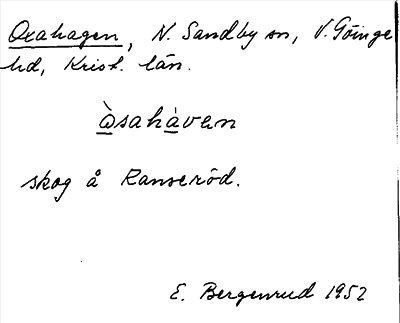 Oxahagen, N. Sandby sn, V. Göinge
hd, Krist. län.
ò̲sahà̲ven
skog å Ranseröd.
E. Bergenrud 1952